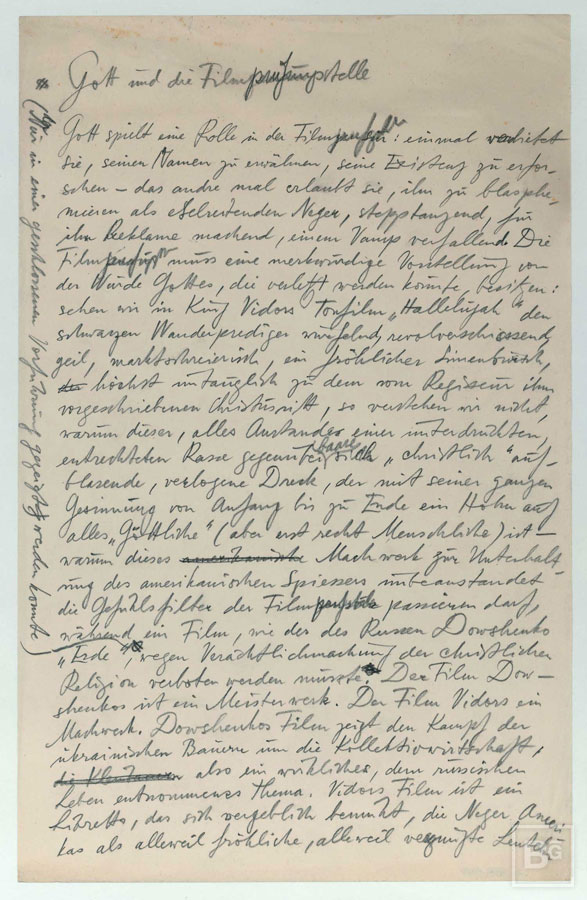 Gott und die Filmprüfungsstelle
Gott spielt eine Rolle in der Filmzensur: einmal verbietet
sie, seinen Namen zu erwähnen, seine Existenz zu erfor-
schen – das andre mal erlaubt sie, ihn zu blasphe-
mieren als Neger, stepptanzend, für
ihn Reklame machend, einem Vamp verfallend. Die
muss eine merkwürdige Vorstellung von
der Würde Gottes, die verletzt werden könnte, besitzen:
sehen wir in King Vidors Tonfilm „Hallelujah" den
schwarzen Wanderprediger würfelnd, revolverschiessend,
geil, marktschreierisch, ein fröhlicher
höchst untauglich zu dem vom Regisseur ihm
vorgeschriebenen, so verstehen wir nicht,
warum dieser, alles Anstandes einer unterdrückten,
entrechteten Rasse gegenüber baare, sich „christlich" auf-
blasende, verlogene Dreck, der mit seiner ganzen
Gesinnung von Anfang bis zu Ende ein Hohn auf
alles „Göttliche" (aber erst recht Menschliche) ist –
warum dieses amerikanische Machwerk zur Unterhalt-
ung des amerikanischen Spiessers unbeanstandet
die Gefühlsfilter der passieren darf,
während ein Film, wie der des Russen Dowshenko
„Erde", wegen Verächtlichmachung der christlichen
Religion verboten werden musste. Der Film Dow-
shenkos ist ein Meisterwerk. Der Film Vidors ein
Machwerk. Dowshenkos Film zeigt den Kampf der
ukrainischen Bauern um die Kollektivwirtschaft,
also ein wirkliches, dem russischen
Leben entnommenes Thema. Vidors Film ist ein
Libretto, das sich vergeblich bemüht, die Neger Ameri
kas als alleweil fröhliche, alleweil vergnügte
(Nur in einer geschlossenen Vorführung gezeigt werden konnte)
BG